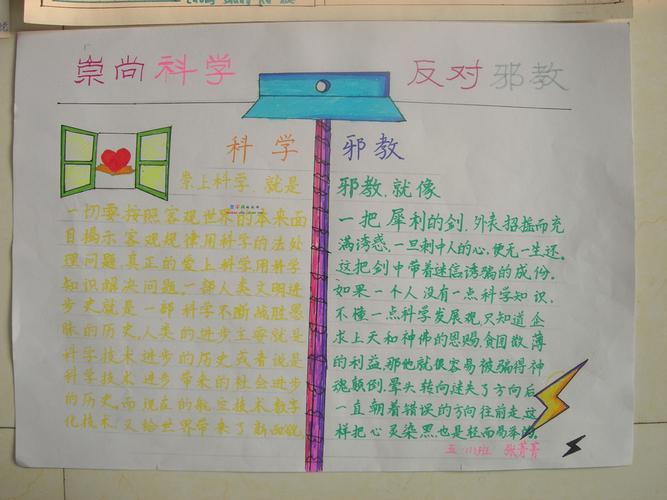 崇尚科学
反对邪教
科学
崇上科学,就是
一切要按照客观世界的本来面
目揭示客观规律用科学的法处
理问题,真正的爱上科学用科学
知识解决问题一部人类文明进
步史就是一部科学不断战胜愚
昧的历史,人类的进步主要就是
科学技术进步的历史或者说是
科学技术进步带来的社会进步
的历史,而现在的航空技术,数字
化技术,又给世界带来了新面貌
邪教
邪教,就像
一把犀利的剑,外表招摇而充
满诱惑,一旦刺中人的心,便无一生还。
这把剑中带着迷信诱骗的成份。
如果一个人没有一点科学知识,
不懂一点科学发展观,只知道企
求上天和神佛的恩赐,贪图散薄
的利益,那他就很容易被骗得神
魂颠倒,晕头转向迷失了方向后,
一直朝着错误的方向往前走,这
样把心灵染黑也是轻而易举的。
五·(1)班 张菁菁